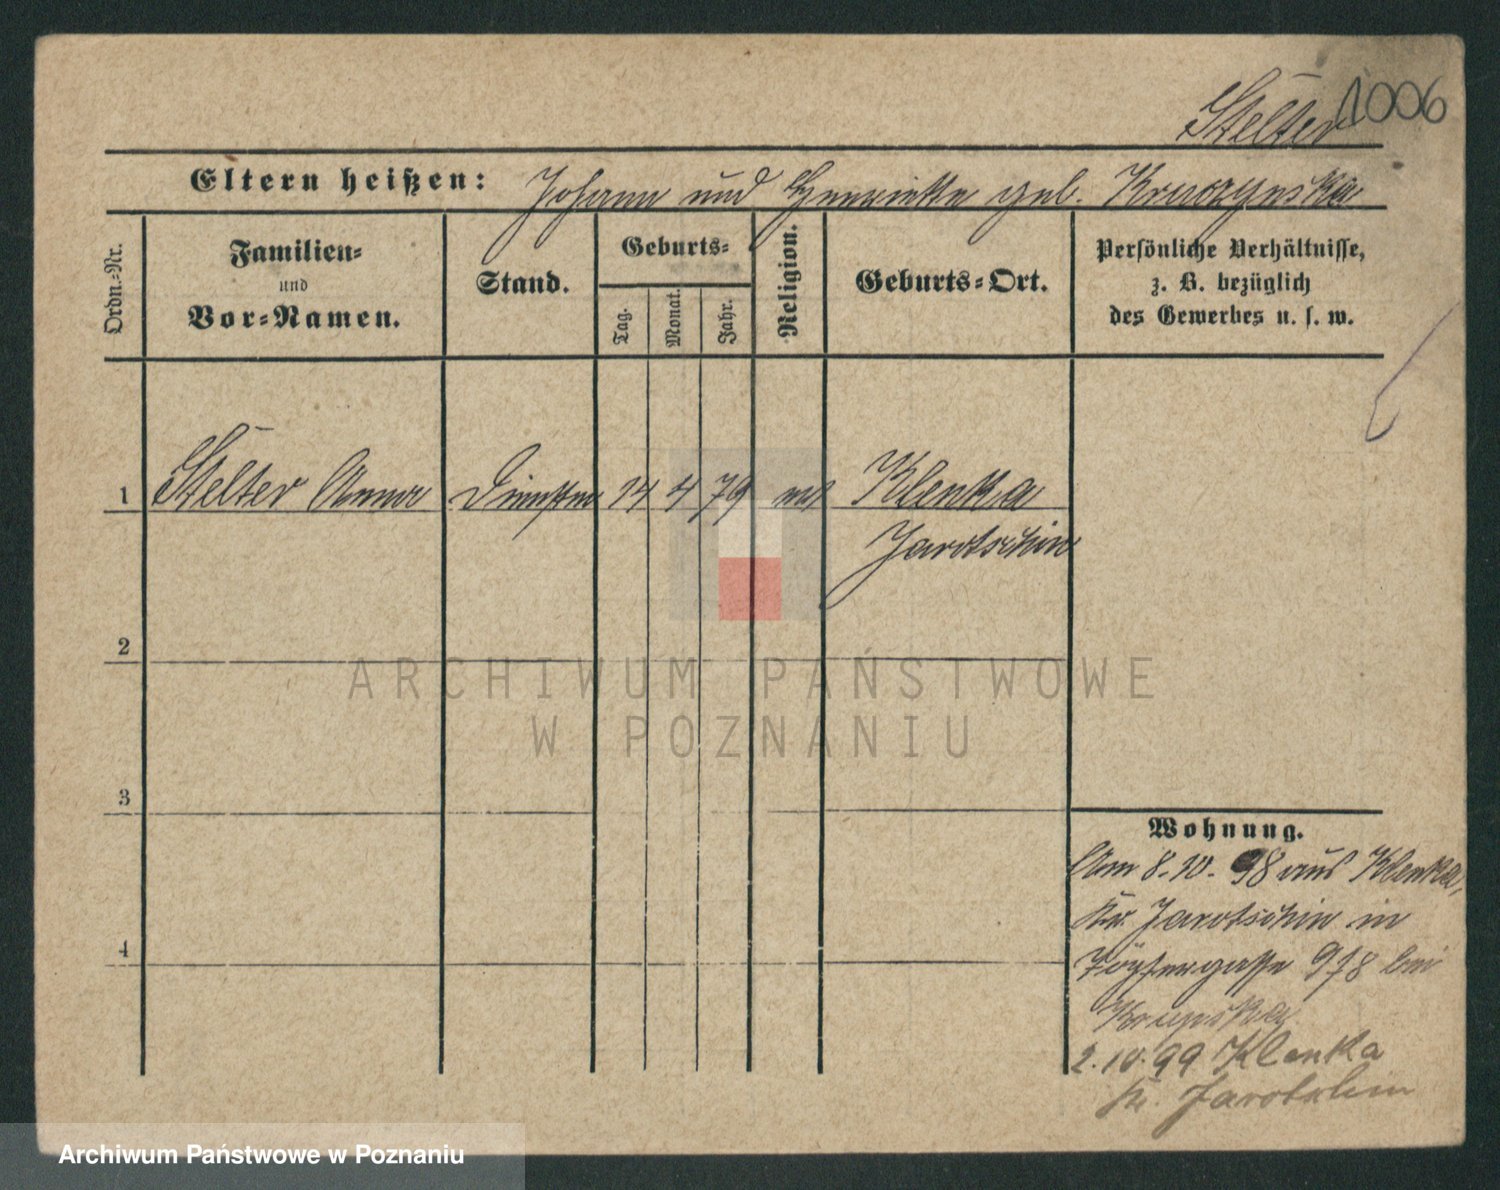 Stelter 1006
Eltern heißen: Johann und Henriette geb. Kruczynska
Ordn.=Nr.
Familien=
und
Vor=Namen.
Stand.
Geburts=
Tag.
Monat.
Jahr.
Religion.
Geburts=Ort.
Persönliche Verhältnisse,
z. B. bezüglich
des Gewerbes u. s. w.
1 Stelter Anna 14 4 79 Klenka
Jarotschin
2
3
4
Wohnung.
Am 8.10.98 aus Klenka,
Kr. Jarotschin in
Töpfergasse 9/8 bei
Krupska
2.10.99 Klenka
Kr. Jarotschin
ARCHIWUM PAŃSTWOWE
W POZNANIU
Archiwum Państwowe w Poznaniu